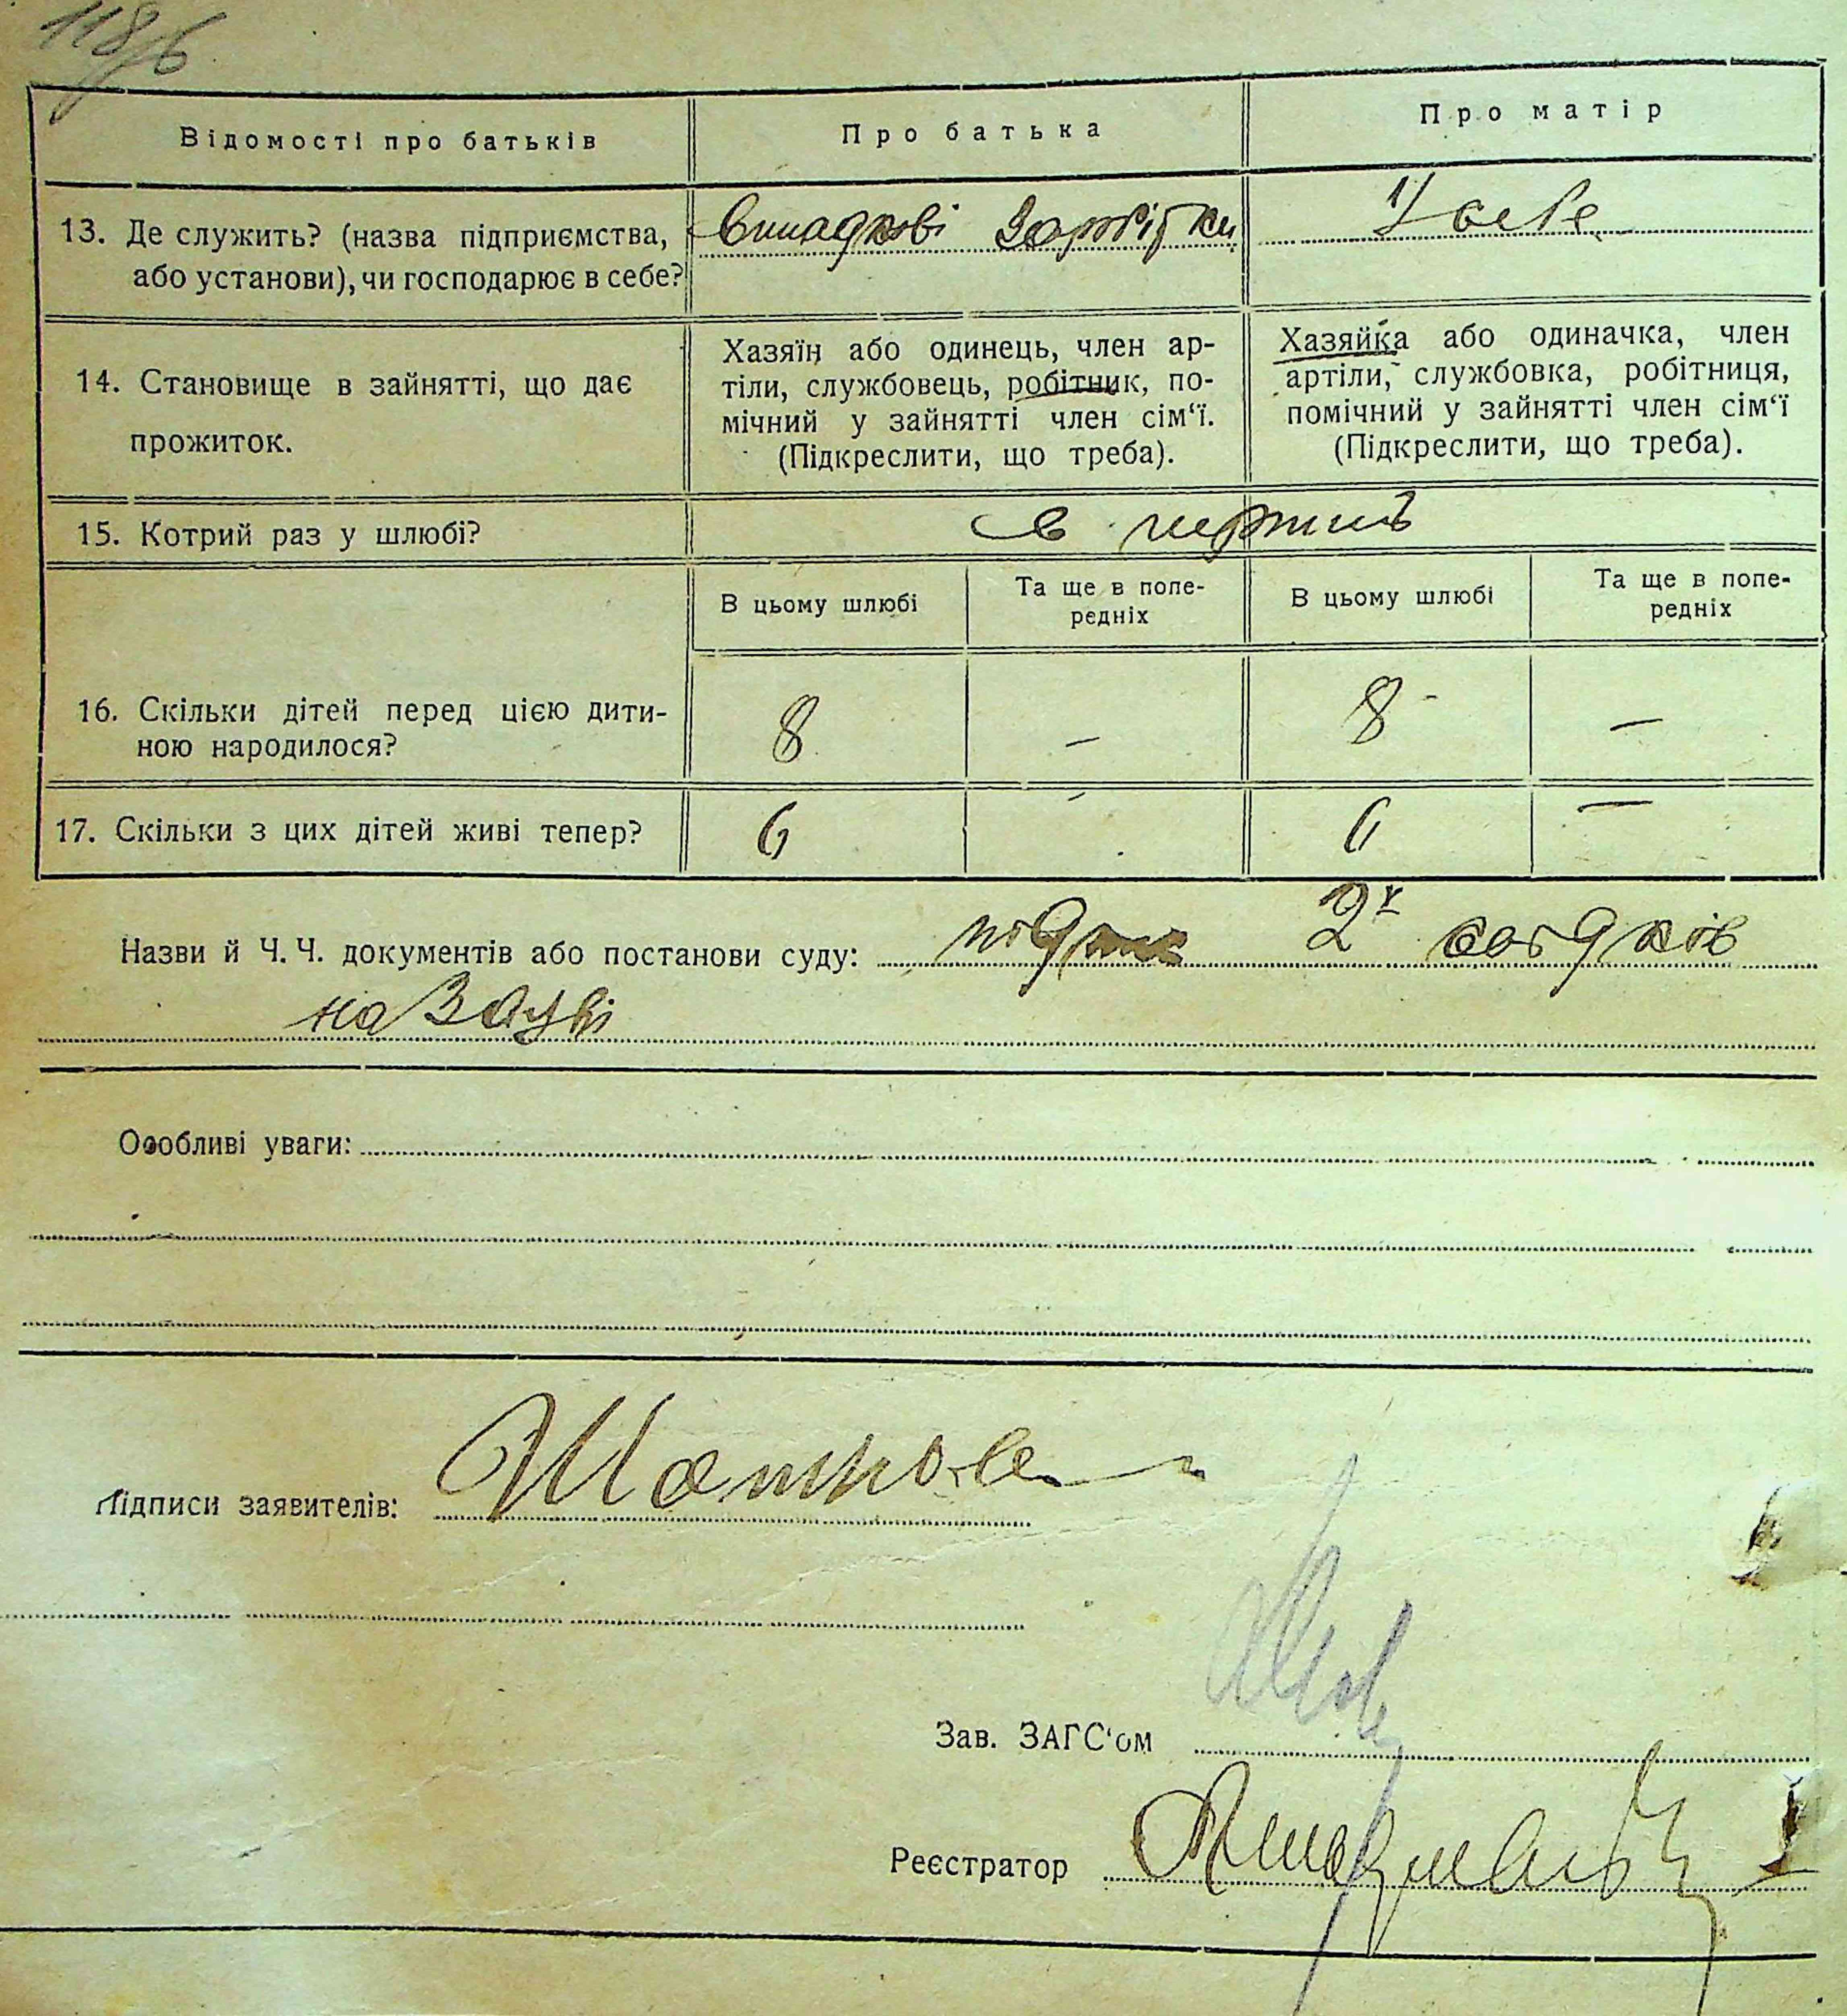 118/б
Відомості про батьків
Про батька
Про матір
13. Де служить? (назва підприємства,
або установи), чи господарює в себе?
випадкові заробітки
У себе
14. Становище в зайнятті, що дає
прожиток.
Хазяїн або одинець, член ар-
тіли, службовець, робітник, по-
мічний у зайнятті член сім‘ї.
(Підкреслити, що треба).
Хазяйка або одиначка, член
артіли, службовка, робітниця,
помічний у зайнятті член сім‘ї
(Підкреслити, що треба).
15. Котрий раз у шлюбі?
в перший
В цьому шлюбі
Та ще в попе-
редніх
В цьому шлюбі
Та ще в попе-
редніх
16. Скільки дітей перед цією дити-
ною народилося?
8 — 8 —
17. Скільки з цих дітей живі тепер?
6 - 6 —
Назви й Ч. Ч. документів або постанови суду: 2х свідків
на заяві
Особливі уваги:
Підписи заявителів:
Зав. ЗАГС‘ом
Реєстратор